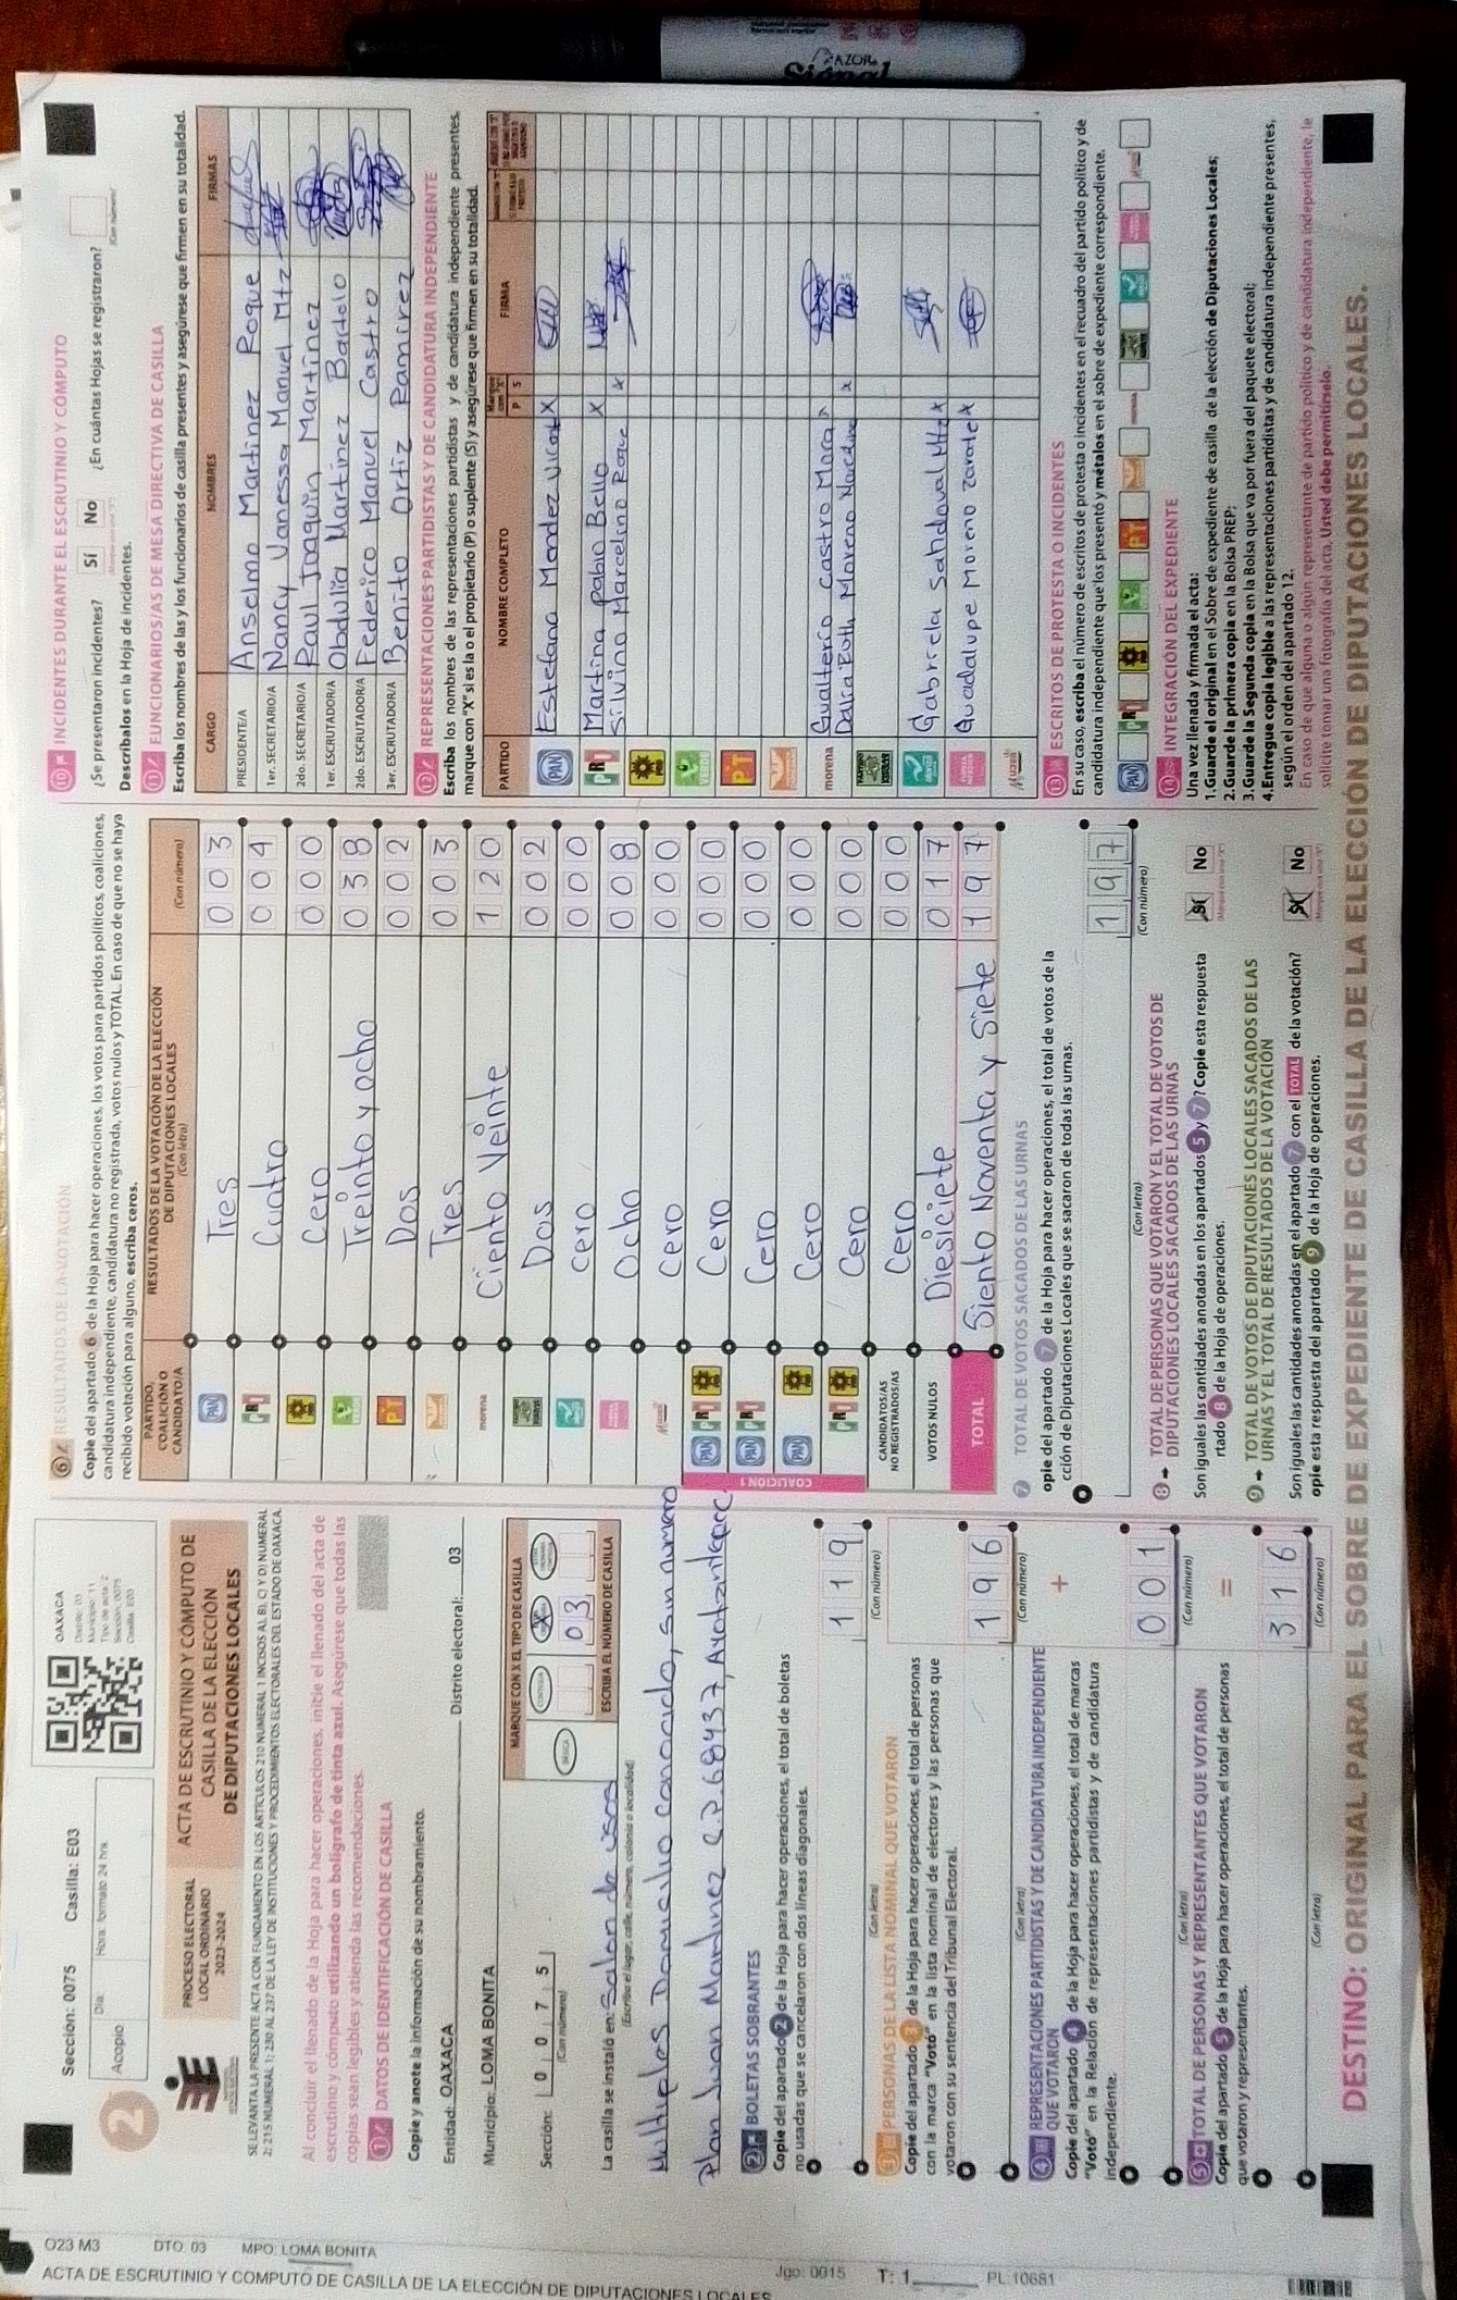 O23 M3
DTO: 03
MPO: LOMA BONITA
ACTA DE ESCRUTINIO Y COMPUTO DE CASILLA DE LA ELECCIÓN DE DIPUTACIONES LOCALES
Jgo: 0015
T: 1
PL: 10681
Sección: 0075 Casilla: E03
2
Acopio
Día:
Hora: formato 24 hrs
OAXACA
Distrito: 03
Municipio: 11
Tipo de acta: 2
Sección: 0075
Casilla: E03
PROCESO ELECTORAL
LOCAL ORDINARIO
2023-2024
ACTA DE ESCRUTINIO Y CÓMPUTO DE
CASILLA DE LA ELECCIÓN
DE DIPUTACIONES LOCALES
SE LEVANTA LA PRESENTE ACTA CON FUNDAMENTO EN LOS ARTÍCULOS 210 NUMERAL 1 INCISOS A), B), C) Y D) NUMERAL
2; 215 NUMERAL 1; 230 AL 237 DE LA LEY DE INSTITUCIONES Y PROCEDIMIENTOS ELECTORALES DEL ESTADO DE OAXACA.
Al concluir el llenado de la Hoja para hacer operaciones, inicie el llenado del acta de
escrutinio y cómputo utilizando un bolígrafo de tinta azul. Asegúrese que todas las
copias sean legibles y atienda las recomendaciones.
1 DATOS DE IDENTIFICACIÓN DE CASILLA
Copie y anote la información de su nombramiento.
Entidad: OAXACA Distrito electoral: 03
Municipio: LOMA BONITA
Sección: 0 0 7 5
(Con número)
MARQUE CON X EL TIPO DE CASILLA
BÁSICA
X
03
ESCRIBA EL NÚMERO DE CASILLA
La casilla se instaló en: Salon de usos
(Escriba el lugar, calle, número, colonia o localidad)
Multiplos Domicilio conocido, sin numero
Plan Juan Martinez C.P. 68437, Ayotzintepec
2 BOLETAS SOBRANTES
Copie del apartado 2 de la Hoja para hacer operaciones, el total de boletas
no usadas que se cancelaron con dos líneas diagonales.
119
(Con letra) (Con número)
3 PERSONAS DE LA LISTA NOMINAL QUE VOTARON
Copie del apartado 3 de la Hoja para hacer operaciones, el total de personas
con la marca "Votó" en la lista nominal de electores y las personas que
votaron con su sentencia del Tribunal Electoral.
196
(Con letra) (Con número)
+
4 REPRESENTACIONES PARTIDISTAS Y DE CANDIDATURA INDEPENDIENTE
QUE VOTARON
Copie del apartado 4 de la Hoja para hacer operaciones, el total de marcas
"Votó" en la Relación de representaciones partidistas y de candidatura
independiente.
001
(Con letra) (Con número)
=
5 TOTAL DE PERSONAS Y REPRESENTANTES QUE VOTARON
Copie del apartado 5 de la Hoja para hacer operaciones, el total de personas
que votaron y representantes.
316
(Con letra) (Con número)
6 RESULTADOS DE LA VOTACIÓN
Copie del apartado 6 de la Hoja para hacer operaciones, los votos para partidos políticos, coaliciones,
candidatura independiente, candidatura no registrada, votos nulos y TOTAL. En caso de que no se haya
recibido votación para alguno, escriba ceros.
PARTIDO,
COALICIÓN O
CANDIDATO/A
RESULTADOS DE LA VOTACIÓN DE LA ELECCIÓN
DE DIPUTACIONES LOCALES
(Con letra)
(Con número)
PAN Tres 003
PRI Cuatro 004
PRD Cero 000
VERDE Treinta y ocho 038
PT Dos 002
Tres 003
morena Ciento Veinte 120
Dos 002
cero 000
Ocho 008
Mujer cero 000
COALICIÓN 1
PAN PRI PRD Cero 000
PAN PRI Cero 000
PAN PRD Cero 000
PRI PRD Cero 000
CANDIDATOS/AS
NO REGISTRADOS/AS Cero 000
VOTOS NULOS Diesiciete 017
TOTAL Siento Noventa y Siete 197
7 TOTAL DE VOTOS SACADOS DE LAS URNAS
opie del apartado 7 de la Hoja para hacer operaciones, el total de votos de la
cción de Diputaciones Locales que se sacaron de todas las urnas.
197
(Con letra) (Con número)
8 TOTAL DE PERSONAS QUE VOTARON Y EL TOTAL DE VOTOS DE
DIPUTACIONES LOCALES SACADOS DE LAS URNAS
Son iguales las cantidades anotadas en los apartados 5 y 7? Copie esta respuesta
rtado 8 de la Hoja de operaciones.
Sí No
9 TOTAL DE VOTOS DE DIPUTACIONES LOCALES SACADOS DE LAS
URNAS Y EL TOTAL DE RESULTADOS DE LA VOTACIÓN
Son iguales las cantidades anotadas en el apartado 7 con el TOTAL de la votación?
opie esta respuesta del apartado 9 de la Hoja de operaciones.
Sí No
10 INCIDENTES DURANTE EL ESCRUTINIO Y CÓMPUTO
¿Se presentaron incidentes? Sí No ¿En cuántas Hojas se registraron?
(Con número)
Descríbalos en la Hoja de incidentes.
11 FUNCIONARIOS/AS DE MESA DIRECTIVA DE CASILLA
Escriba los nombres de las y los funcionarios de casilla presentes y asegúrese que firmen en su totalidad.
CARGO NOMBRES FIRMAS
PRESIDENTE/A Anselmo Martinez Roque
1er. SECRETARIO/A Nancy Vanessa Manuel Mtz
2do. SECRETARIO/A Raul Joaquin Martinez
1er. ESCRUTADOR/A Obdulia Martinez Bartolo
2do. ESCRUTADOR/A Federico Manuel Castro
3er. ESCRUTADOR/A Benito Ortiz Ramirez
12 REPRESENTACIONES PARTIDISTAS Y DE CANDIDATURA INDEPENDIENTE
Escriba los nombres de las representaciones partidistas y de candidatura independiente presentes,
marque con "X" si es la o el propietario (P) o suplente (S) y asegúrese que firmen en su totalidad.
PARTIDO NOMBRE COMPLETO Marque con "X" P S FIRMA
PAN Estefana Mendez Vicat X
PRI Martina pabio Bello X
Silvino Marcelino Roque x
PRD
VERDE
PT
morena Gualterio Castro Mora x
Dalia Ruth Moreno x
Gabriela Sandoval Mtz x
Guadalupe Moreno Zarate x
Mujer
13 ESCRITOS DE PROTESTA O INCIDENTES
En su caso, escriba el número de escritos de protesta o incidentes en el recuadro del partido político y de
candidatura independiente que los presentó y métalos en el sobre de expediente correspondiente.
PAN PRI PT morena
14 INTEGRACIÓN DEL EXPEDIENTE
Una vez llenada y firmada el acta:
1.Guarde el original en el Sobre de expediente de casilla de la elección de Diputaciones Locales;
2.Guarde la primera copia en la Bolsa PREP;
3.Guarde la Segunda copia en la Bolsa que va por fuera del paquete electoral;
4.Entregue copia legible a las representaciones partidistas y de candidatura independiente presentes,
según el orden del apartado 12.
En caso de que alguna o algún representante de partido político y de candidatura independiente, le
solicite tomar una fotografía del acta, Usted debe permitírselo.
DESTINO: ORIGINAL PARA EL SOBRE DE EXPEDIENTE DE CASILLA DE LA ELECCIÓN DE DIPUTACIONES LOCALES.
AZOR
Signal